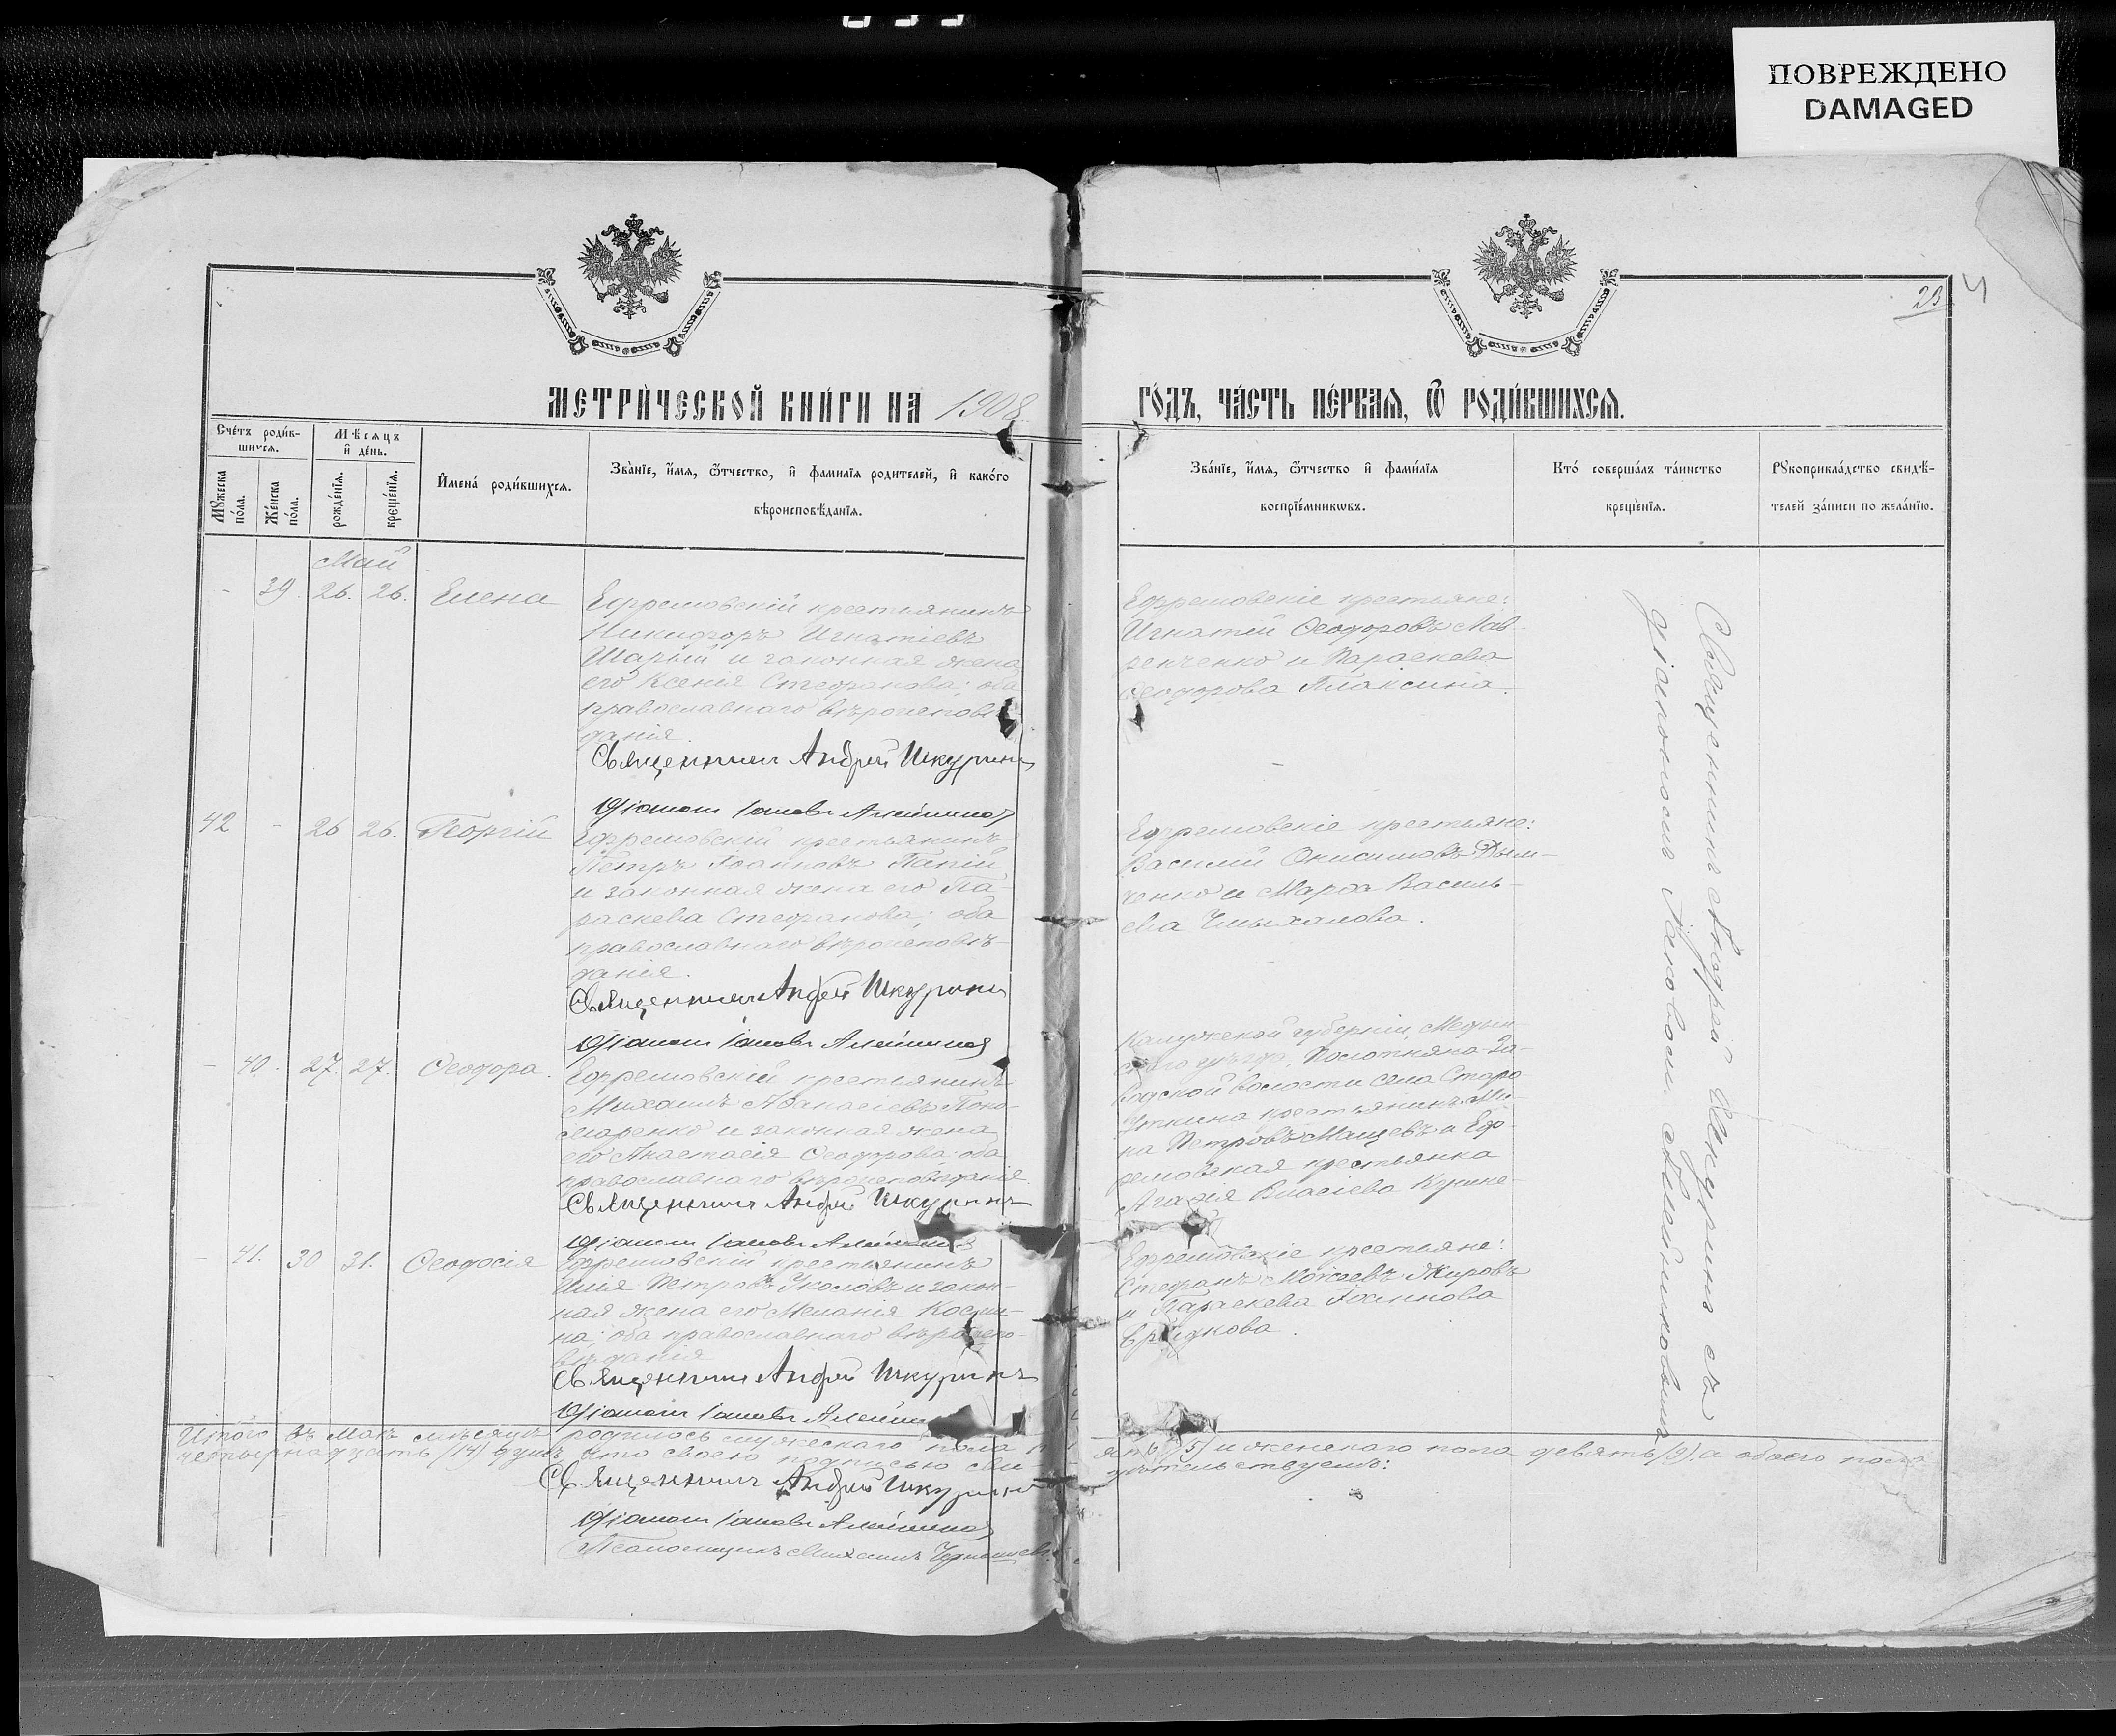 ПОВРЕЖДЕНО
DAMAGED
23
МЕТРИ́ЧЕСКОЙ КНИ́ГИ НА 1908
ГО́ДЪ, ЧА́СТЬ ПЕ́РВАЯ, Ѿ РОДИ́ВШИХСЯ.
Сче́тъ роди́вшихся.
Мѣсяцъ и де́нь.
Му́жеска по́ла.
Же́нска по́ла.
рожде́нія.
креще́нія.
Имена́ роди́вшихся.
Зва́ніе, и́мя, ѻ҆́тчество, и фами́лія родителей, и како́го
вѣроисповѣ́данія.
Зва́ніе, и́мя, ѻ҆́тчество и фами́лія
воспріе́мникѡвъ.
Кто́ соверша́лъ та́инство
креще́нія.
Рукоприкла́дство свидѣ́-
телей за́писи по жела́нію.
Май
- 39. 26. 26. Елена
Ефремовскій крестьянинъ
Никифоръ Игнатіевъ
Шарый и законная жена
его Ксенія Стефанова; оба
православнаго вѣроисповѣ-
данія.
Священникъ Андрей Шкуринъ
Діаконъ Алейников
Ефремовскіе крестьяне:
Игнатій Ѳеодоровъ Лав-
ренченко и Параскева
Ѳеодорова Плаксина.
42 - 26 26. Георгій
Ефремовскій крестьянинъ
Петръ Іоанновъ Папій
и законная жена его Па-
раскева Стефанова; оба
православнаго вѣроисповѣ-
данія.
Священникъ Андрей Шкуринъ
Діаконъ Алейников
Ефремовскіе крестьяне:
Василій Онисимовъ Дьем-
ченко и Марѳа Василь-
ева
- 40. 27. 27. Ѳеодора.
Ефремовскій крестьянинъ
Михаилъ Аѳанасіевъ Поно-
маренко и законная жена
его Анастасія Ѳеодорова: оба
православнаго вѣроисповѣданія.
Священникъ Андрей Шкуринъ
Діаконъ Алейников
Калужской губерніи, Медын-
скаго уѣзда, Полотняно-За-
водской волости села Старо-
уткина крестьянинъ Ми-
на Петровъ и Еф-
ремовская крестьянка
Агаѳія Власіева
- 41. 30 31. Ѳеодосія
Ефремовскій крестьянинъ
Илія Петровъ Уколовъ и закон-
ная жена его Меланія Косми-
на: оба православнаго вѣроиспо-
вѣданія
Священникъ Андрей Шкуринъ
Діаконъ Алейников
Ефремовскіе крестьяне:
Стефанъ Моисеевъ Жировъ
и Параскева Іоаннова
Священникъ Андрей Шкуринъ съ
діакономъ Павломъ Алейниковымъ
Итого въ маѣ мѣсяцѣ родилось мужескаго пола пять (5) и женскаго пола девять (9), а обоего пола
четырнадцать (14) душъ, что своею подписью сви дѣтельствуемъ:
Священникъ Андрей Шкуринъ
Діаконъ Алейников
Псаломщикъ Михаилъ